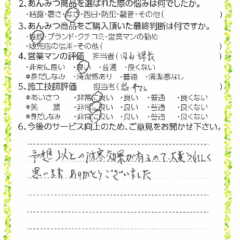 2、あんみつ商品を選ばれた際の悩みは何でしたか。
・結露・暑さ・寒さ・西日・防犯・騒音・その他(　)
3、あんみつ商品をご購入頂いた最終判断は何ですか。
・ブランド・クチコミ・営業マンの勧め
・販売店の伝承・その他(　)
4、営業マンの評価　担当者(
・非常に良い・良い・普通・良くない
*身だしなみ・清潔感あり・普通・清潔感なし
5、施工技師評価　担当者(
*あいさつ・非常に良い・良い・普通・良くない
*笑顔・非常に良い・良い・普通・良くない
*身だしなみ・非常に良い・良い・普通・良くない
6、今後のサービス向上のため、ご意見をお聞かせ下さい。
予想以上の防寒効果があるので、大変うれしく
思います。ありがとうございました